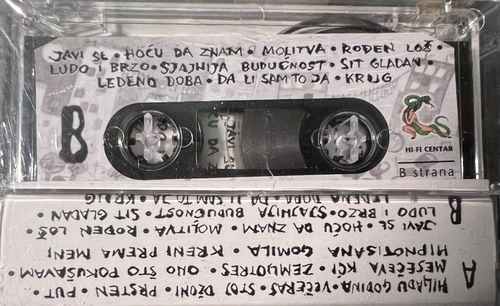 JAVI SE • HOĆU DA ZNAM • MOLITVA • ROĐEN LOŠ •
LUDO I BRZO • SJAJNIJA BUDUĆNOST • SIT GLADAN •
LEDENO DOBA • DA LI SAM TO JA • KRUG
B
HI-FI CENTAR
B strana
A
HILJADU GODINA • VEČERAS • STOJ DŽONI • PRSTEN • PUT •
MESEČEVA KĆI • ZEMLJOTRES • ONO ŠTO POKUŠAVAM •
HIPNOTISANA GOMILA • KRENI PREMA MENI
B
JAVI SE • HOĆU DA ZNAM • MOLITVA • ROĐEN LOŠ •
LUDO I BRZO • SJAJNIJA BUDUĆNOST • SIT GLADAN •
LEDENO DOBA • DA LI SAM TO JA • KRUG